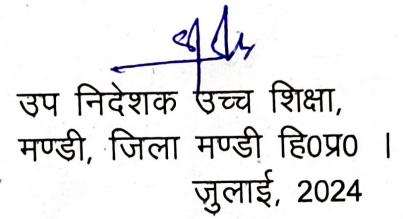 उप निदेशक उच्च शिक्षा,
मण्डी, जिला मण्डी हि0प्र0 ।
जुलाई, 2024